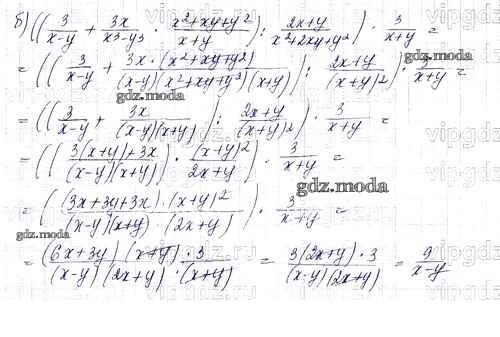 б) ((3/(x-y) + 3x/(x³-y³) · (x²+xy+y²)/(x+y)) : (2x+y)/(x²+2xy+y²)) · 3/(x+y) =
= ((3/(x-y) + 3x·(x²+xy+y²)/((x-y)(x²+xy+y²)(x+y))) : (2x+y)/(x+y)²) · 3/(x+y) =
gdz.moda
= ((3/(x-y) + 3x/((x-y)(x+y))) : (2x+y)/(x+y)²) · 3/(x+y) =
= ((3(x+y)+3x)/((x-y)(x+y)) · (x+y)²/(2x+y)) · 3/(x+y) =
gdz.moda
= ((3x+3y+3x)·(x+y)²/((x-y)(x+y)·(2x+y))) · 3/(x+y) =
= (6x+3y)(x+y)·3/((x-y)(2x+y)·(x+y)) = 3(2x+y)·3/((x-y)(2x+y)) = 9/(x-y)